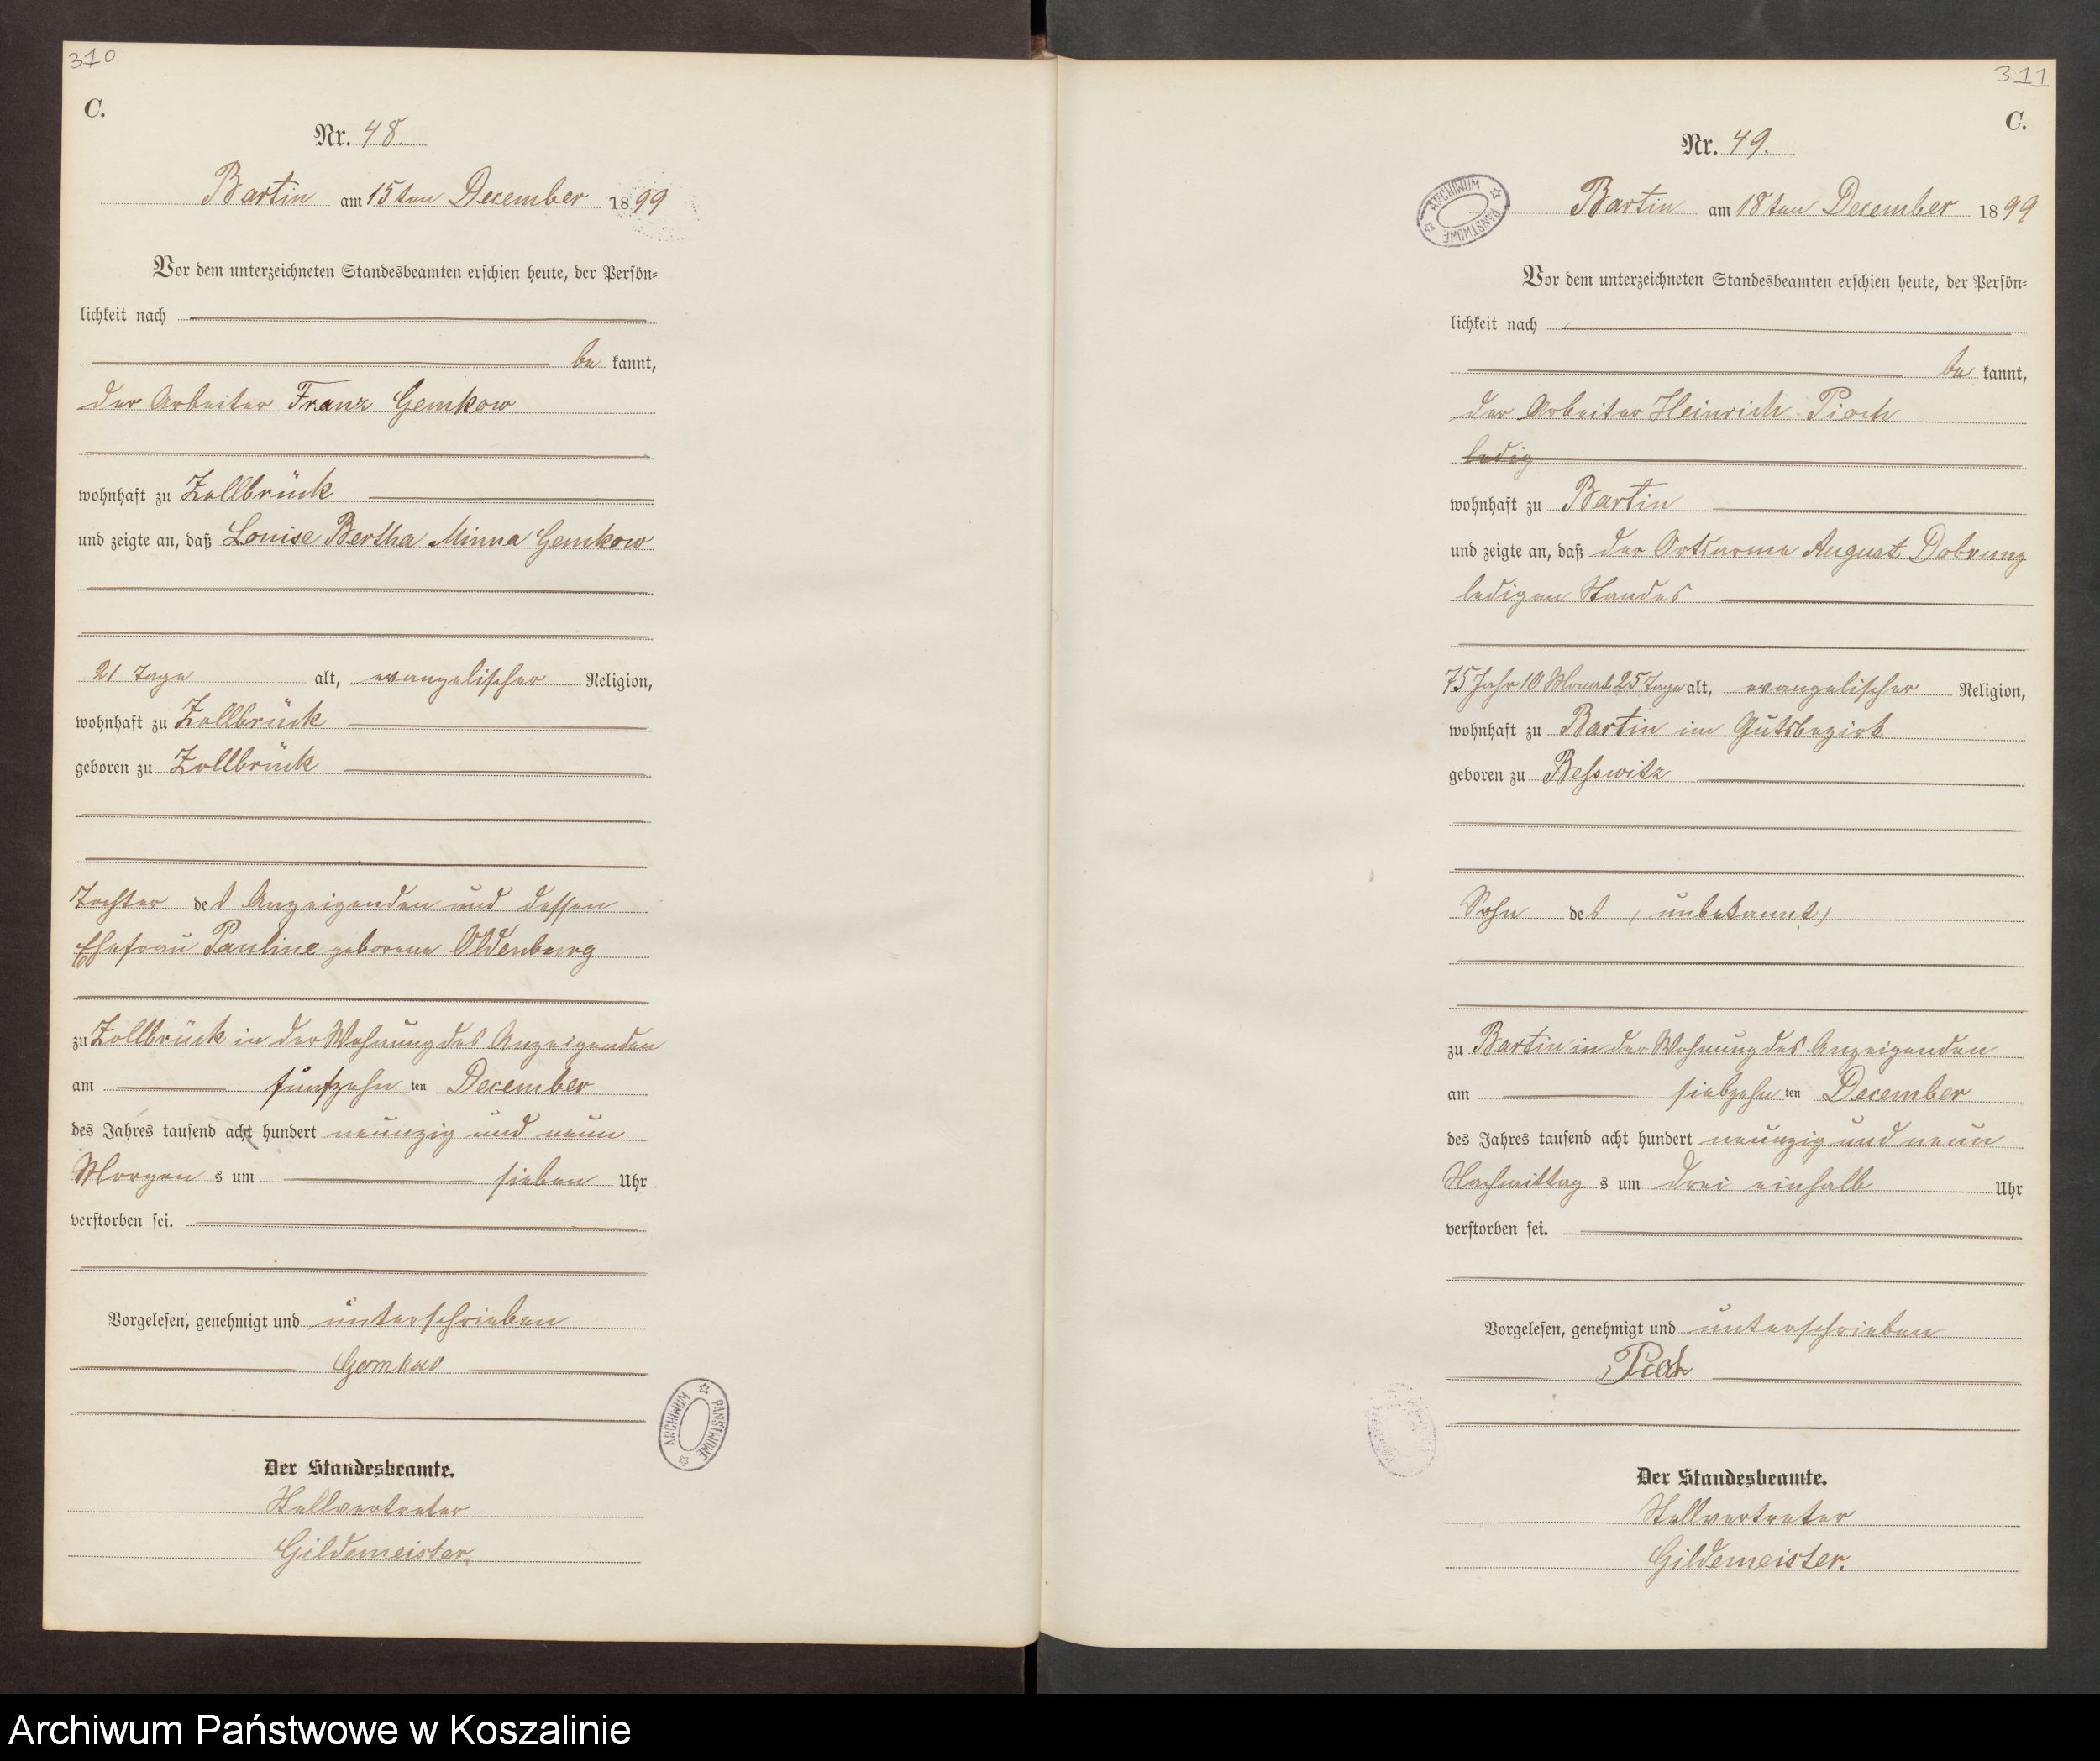 310
C.
Nr. 48.
Bartin am 15ten December 1899
Vor dem unterzeichneten Standesbeamten erschien heute, der Persön-
lichkeit nach
be kannt,
der Arbeiter Franz Gemkow
wohnhaft zu Zollbrück
und zeigte an, daß Louise Bertha Minna Gemkow
21 Tage alt, evangelischer Religion,
wohnhaft zu Zollbrück
geboren zu Zollbrück
Tochter des Anzeigenden und dessen
Ehefrau Pauline geborene Oldenburg
zu Zollbrück in der Wohnung des Anzeigenden
am fünfzehn ten December
des Jahres tausend acht hundert neunzig und neun
Morgen s um sieben Uhr
verstorben sei.
Vorgelesen, genehmigt und unterschrieben
Gemkow
Der Standesbeamte.
Stellvertreter
Gildemeister.
ARCHIWUM PAŃSTWOWE
311
C.
Nr. 49.
ARCHIWUM PAŃSTWOWE
Bartin am 18ten December 1899
Vor dem unterzeichneten Standesbeamten erschien heute, der Persön-
lichkeit nach
be kannt,
der Arbeiter Heinrich Pioch
ledig
wohnhaft zu Bartin
und zeigte an, daß der Ortsarme August Dobrunz
ledigen Standes
75 Jahr 10 Monat 25 Tage alt, evangelischer Religion,
wohnhaft zu Bartin im Gutsbezirk
geboren zu Besswitz
Sohn des (unbekannt)
zu Bartin in der Wohnung des Anzeigenden
am siebzehn ten December
des Jahres tausend acht hundert neunzig und neun
Nachmittag s um drei einhalb Uhr
verstorben sei.
Vorgelesen, genehmigt und unterschrieben
Pioch
Der Standesbeamte.
Stellvertreter
Gildemeister.
Archiwum Państwowe w Koszalinie